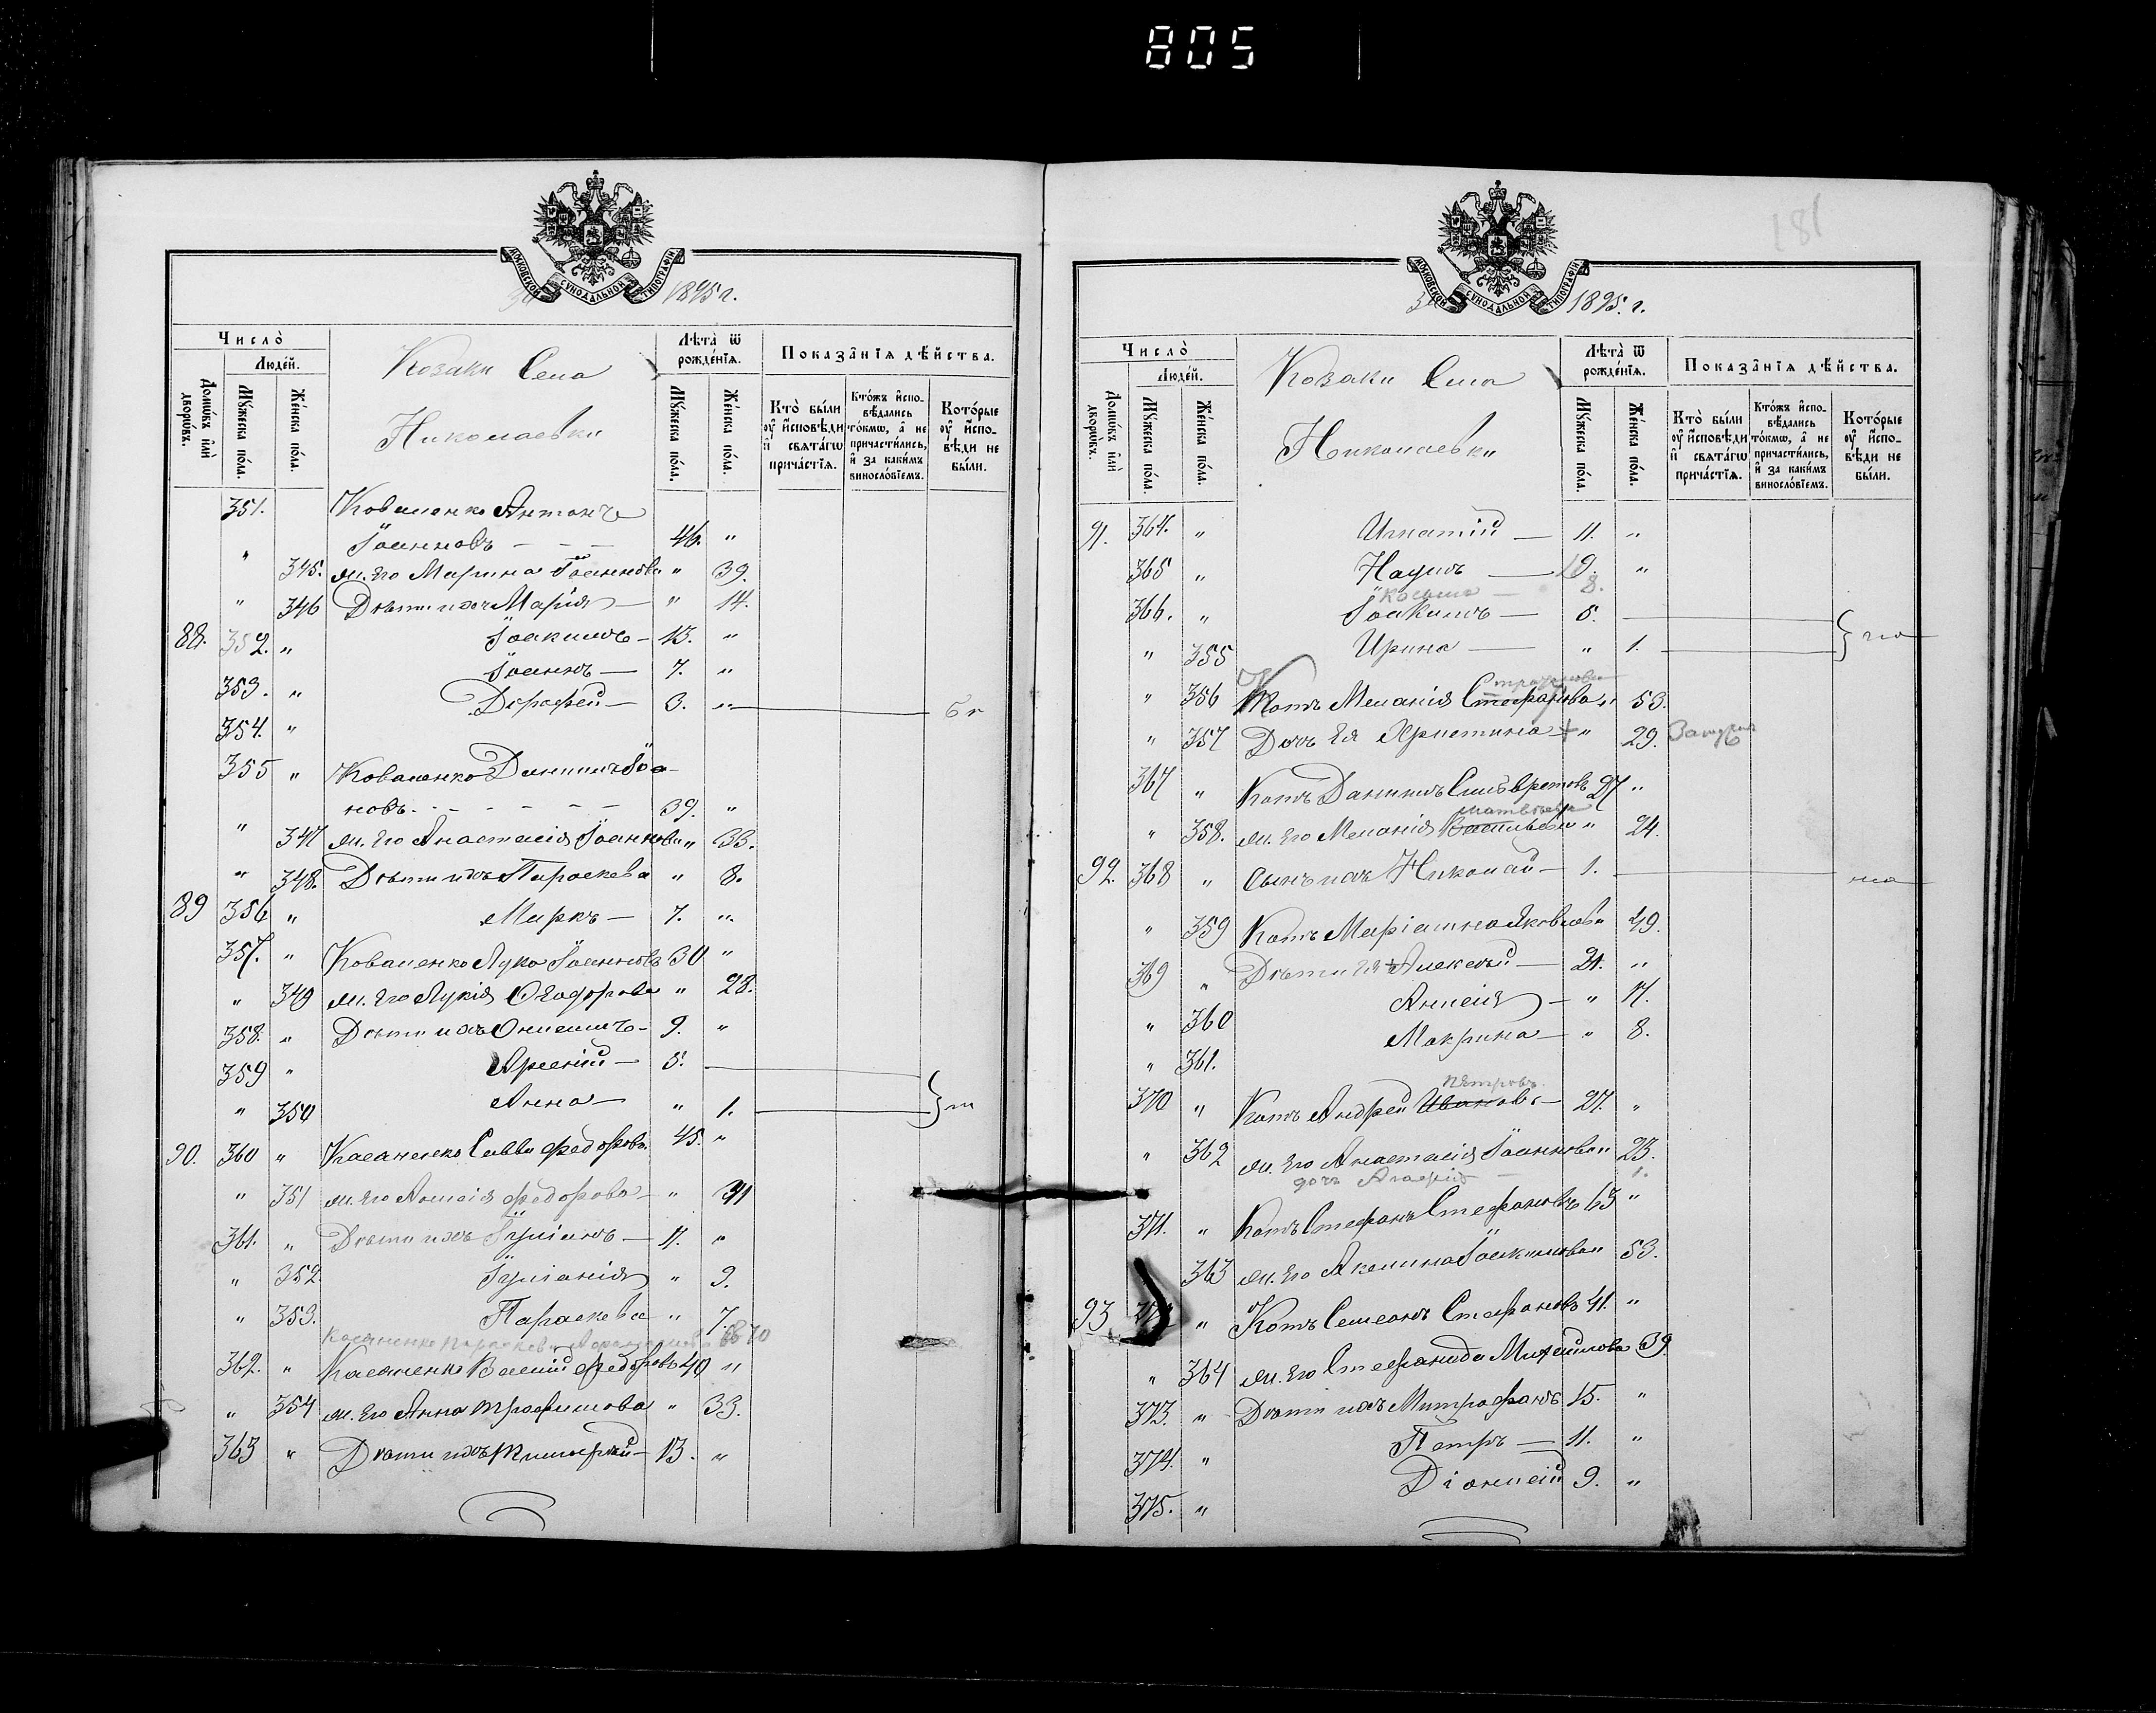 805
МОСКОВСКОЙ СѴНОДАЛЬНОЙ ТИПОГРАФІИ
1895 г.
Число̀
Люде́й.
Домѡ́въ и҆лѝ дворѡ́въ.
Мꙋ́жеска по́ла.
Же́нска по́ла.
Козаки Села
Николаевки
Лѣ́та ѿ рожде́нїѧ.
Мꙋ́жеска по́ла.
Же́нска по́ла.
Показа̑нїѧ дѣ́йства.
Кто̀ бы́ли ᲂу҆ и҆сповѣ́ди и҆ свѧта́гѡ прича́стїѧ.
Кто́жъ и҆сповѣ́дались то́кмѡ, а҆ не причасти́лись, и҆ за каки́мъ винослові́емъ.
Кото́рые ᲂу҆ и҆сповѣ́ди не бы́ли.
351. Коваленко Антонъ
Іоанновъ - - - 46. "
" 345. ж. его Марина Іоаннова " 39.
" 346 Дѣти ихъ Марія — " 14.
88. 352. " Іоакимъ — 13. "
353. " Іоаннъ — 7. "
354. " Дорофей — 3. " бг
355 " Коваленко Даніилъ Іоа-
новъ - - - - - - 39. "
" 347 ж. его Анастасія Іоаннова " 33.
" 348. Дѣти ихъ Параскева " 8.
89 356 " Маркъ — 7. "
357. " Коваленко Лука Іоанновъ 30 "
" 349 ж. его Лукія Ѳеодорова " 28.
358. " Дѣти ихъ Онисимъ — 9. "
359 " Арсеній — 5.
" 350 Анна — " 1.
90. 360 " Касаненко Савва Федоровъ 45. "
" 351 ж. его Анисія Федорова — " 31
361. " Дѣти ихъ Іуліанъ — 11. "
" 352 Іуліанія " 9.
" 353. Параскева " 7.
Касаненко Параскева 70
362. " Касаненко Василій Федоровъ 40 "
" 354 ж. его Анна Трофимова " 33.
363 " Дѣти ихъ Тимофей — 13. "
181
МОСКОВСКОЙ СѴНОДАЛЬНОЙ ТИПОГРАФІИ
1895. г.
Число̀
Люде́й.
Домѡ́въ и҆лѝ дворѡ́въ.
Мꙋ́жеска по́ла.
Же́нска по́ла.
Козаки Села
Николаевки
Лѣ́та ѿ рожде́нїѧ.
Мꙋ́жеска по́ла.
Же́нска по́ла.
Показа̑нїѧ дѣ́йства.
Кто̀ бы́ли ᲂу҆ и҆сповѣ́ди и҆ свѧта́гѡ прича́стїѧ.
Кто́жъ и҆сповѣ́дались то́кмѡ, а҆ не причасти́лись, и҆ за каки́мъ винослові́емъ.
Кото́рые ᲂу҆ и҆сповѣ́ди не бы́ли.
91. 364. " Игнатій — 11. "
365 " Наумъ — 9. "
Косьма — 8.
366. " Іоакимъ — 5.
" 355 Ирина — " 1.
" 356 Котъ Меланія Стефанова " 53.
" 357 Дочь Ея Христина " 29.
367 " Котъ Даніилъ 27 "
Матвѣева
" 358. ж. его Меланія Васильева " 24.
92. 368 " Сынъ ихъ Николай — 1.
" 359 Котъ Маріамна Яковлева 49.
369 " Дѣти ея Алексѣй — 21. "
" 360 Анисія — " 17.
" 361. Макрина — " 8.
Петровъ
370 " Котъ Андрей Ивановъ — 27. "
" 362 ж. его Анастасія Іоаннова " 23.
дочь Агафія — 1.
371. " Котъ Стефанъ Стефановъ 63 "
363 ж. его Акилина Іоакимова " 53.
93 372 " Котъ Симеонъ Стефановъ 41. "
" 364 ж. его Стефанида Михаилова 39.
373. " Дѣти ихъ Митрофанъ 15. "
374. " Петръ — 11. "
375. " Діонисій 9. "